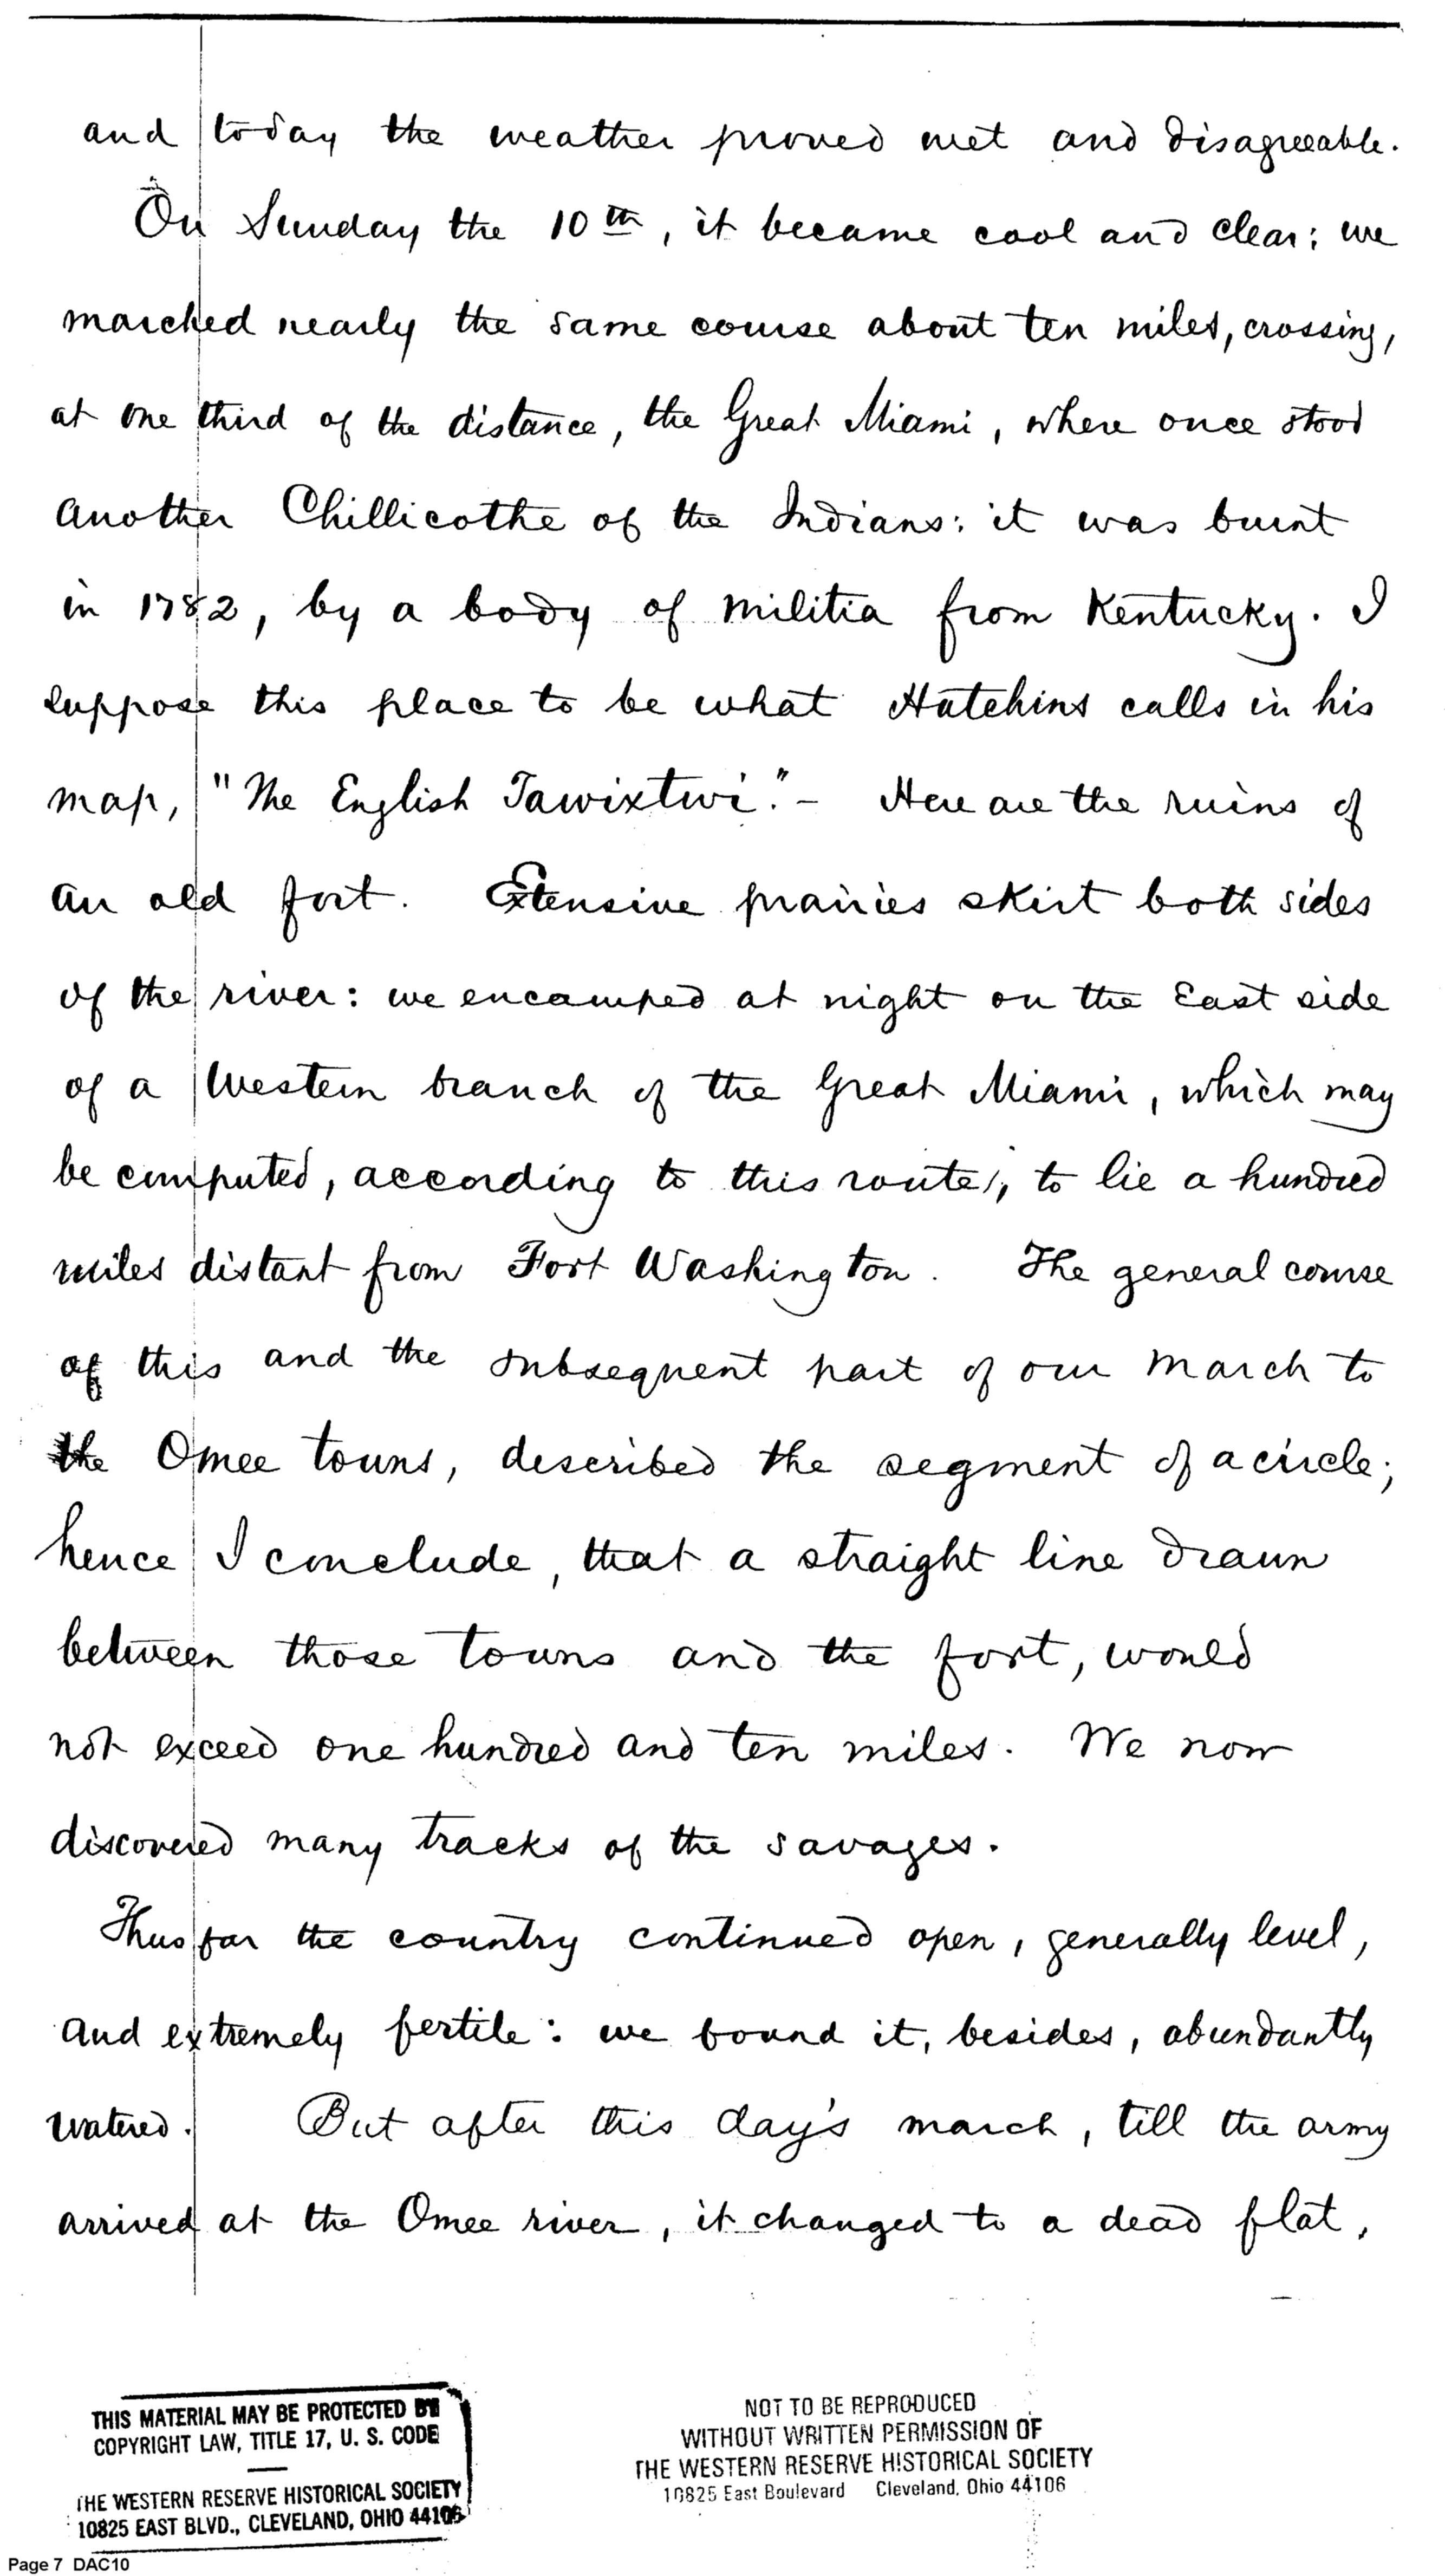 and today the weather proved wet and disagreeable.
On Sunday the 10th, it became cool and clear: we
marched nearly the same course about ten miles, crossing,
at one third of the distance, the Great Miami, where once stood
another Chillicothe of the Indians: it was burnt
in 1782, by a body of militia from Kentucky. I
suppose this place to be what Hutchins calls in his
map, "The English Tawixtwi." - Here are the ruins of
an old fort. Extensive prairies skirt both sides
of the river: we encamped at night on the East side
of a Western branch of the Great Miami, which may
be computed, according to this route, to lie a hundred
miles distant from Fort Washington. The general course
of this and the subsequent part of our march to
the Omee towns, described the segment of a circle;
hence I conclude, that a straight line drawn
between those towns and the fort, would
not exceed one hundred and ten miles. We now
discovered many tracks of the savages.
Thus far the country continued open, generally level,
and extremely fertile: we found it, besides, abundantly
watered. But after this day's march, till the army
arrived at the Omee river, it changed to a dead flat,
THIS MATERIAL MAY BE PROTECTED BY
COPYRIGHT LAW, TITLE 17, U. S. CODE
THE WESTERN RESERVE HISTORICAL SOCIETY
10825 EAST BLVD., CLEVELAND, OHIO 44106
NOT TO BE REPRODUCED
WITHOUT WRITTEN PERMISSION OF
THE WESTERN RESERVE HISTORICAL SOCIETY
10825 East Boulevard Cleveland, Ohio 44106
Page 7 DAC10